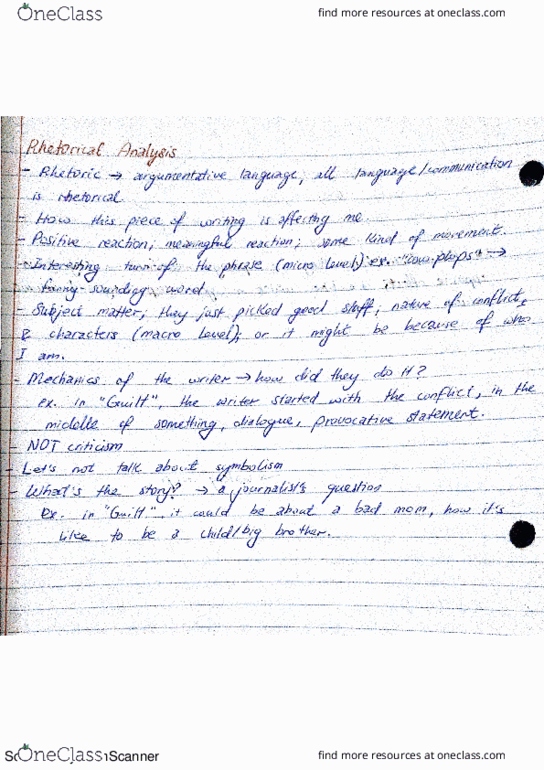 OneClass
find more resources at oneclass.com
Rhetorical Analysis
- Rhetoric → argumentative language, all language/communication
is rhetorical
- How this piece of writing is affecting me.
- Positive reaction; meaningful reaction; some kind of movement.
- Interesting turn of the phrase (micro level) ex. "cow-plops" →
funny-sounding word
- Subject matter; they just picked good stuff; nature of conflict,
& characters (macro level); or it might be because of who
I am.
- Mechanics of the writer → how did they do it?
ex. in "Guilt", the writer started with the conflict, in the
middle of something, dialogue, provocative statement.
NOT criticism
- Let's not talk about symbolism
- What's the story? → a journalist's question
ex. in "Guilt", it could be about a bad mom, how it's
like to be a child/big brother.
OneClass
Scanner
find more resources at oneclass.com